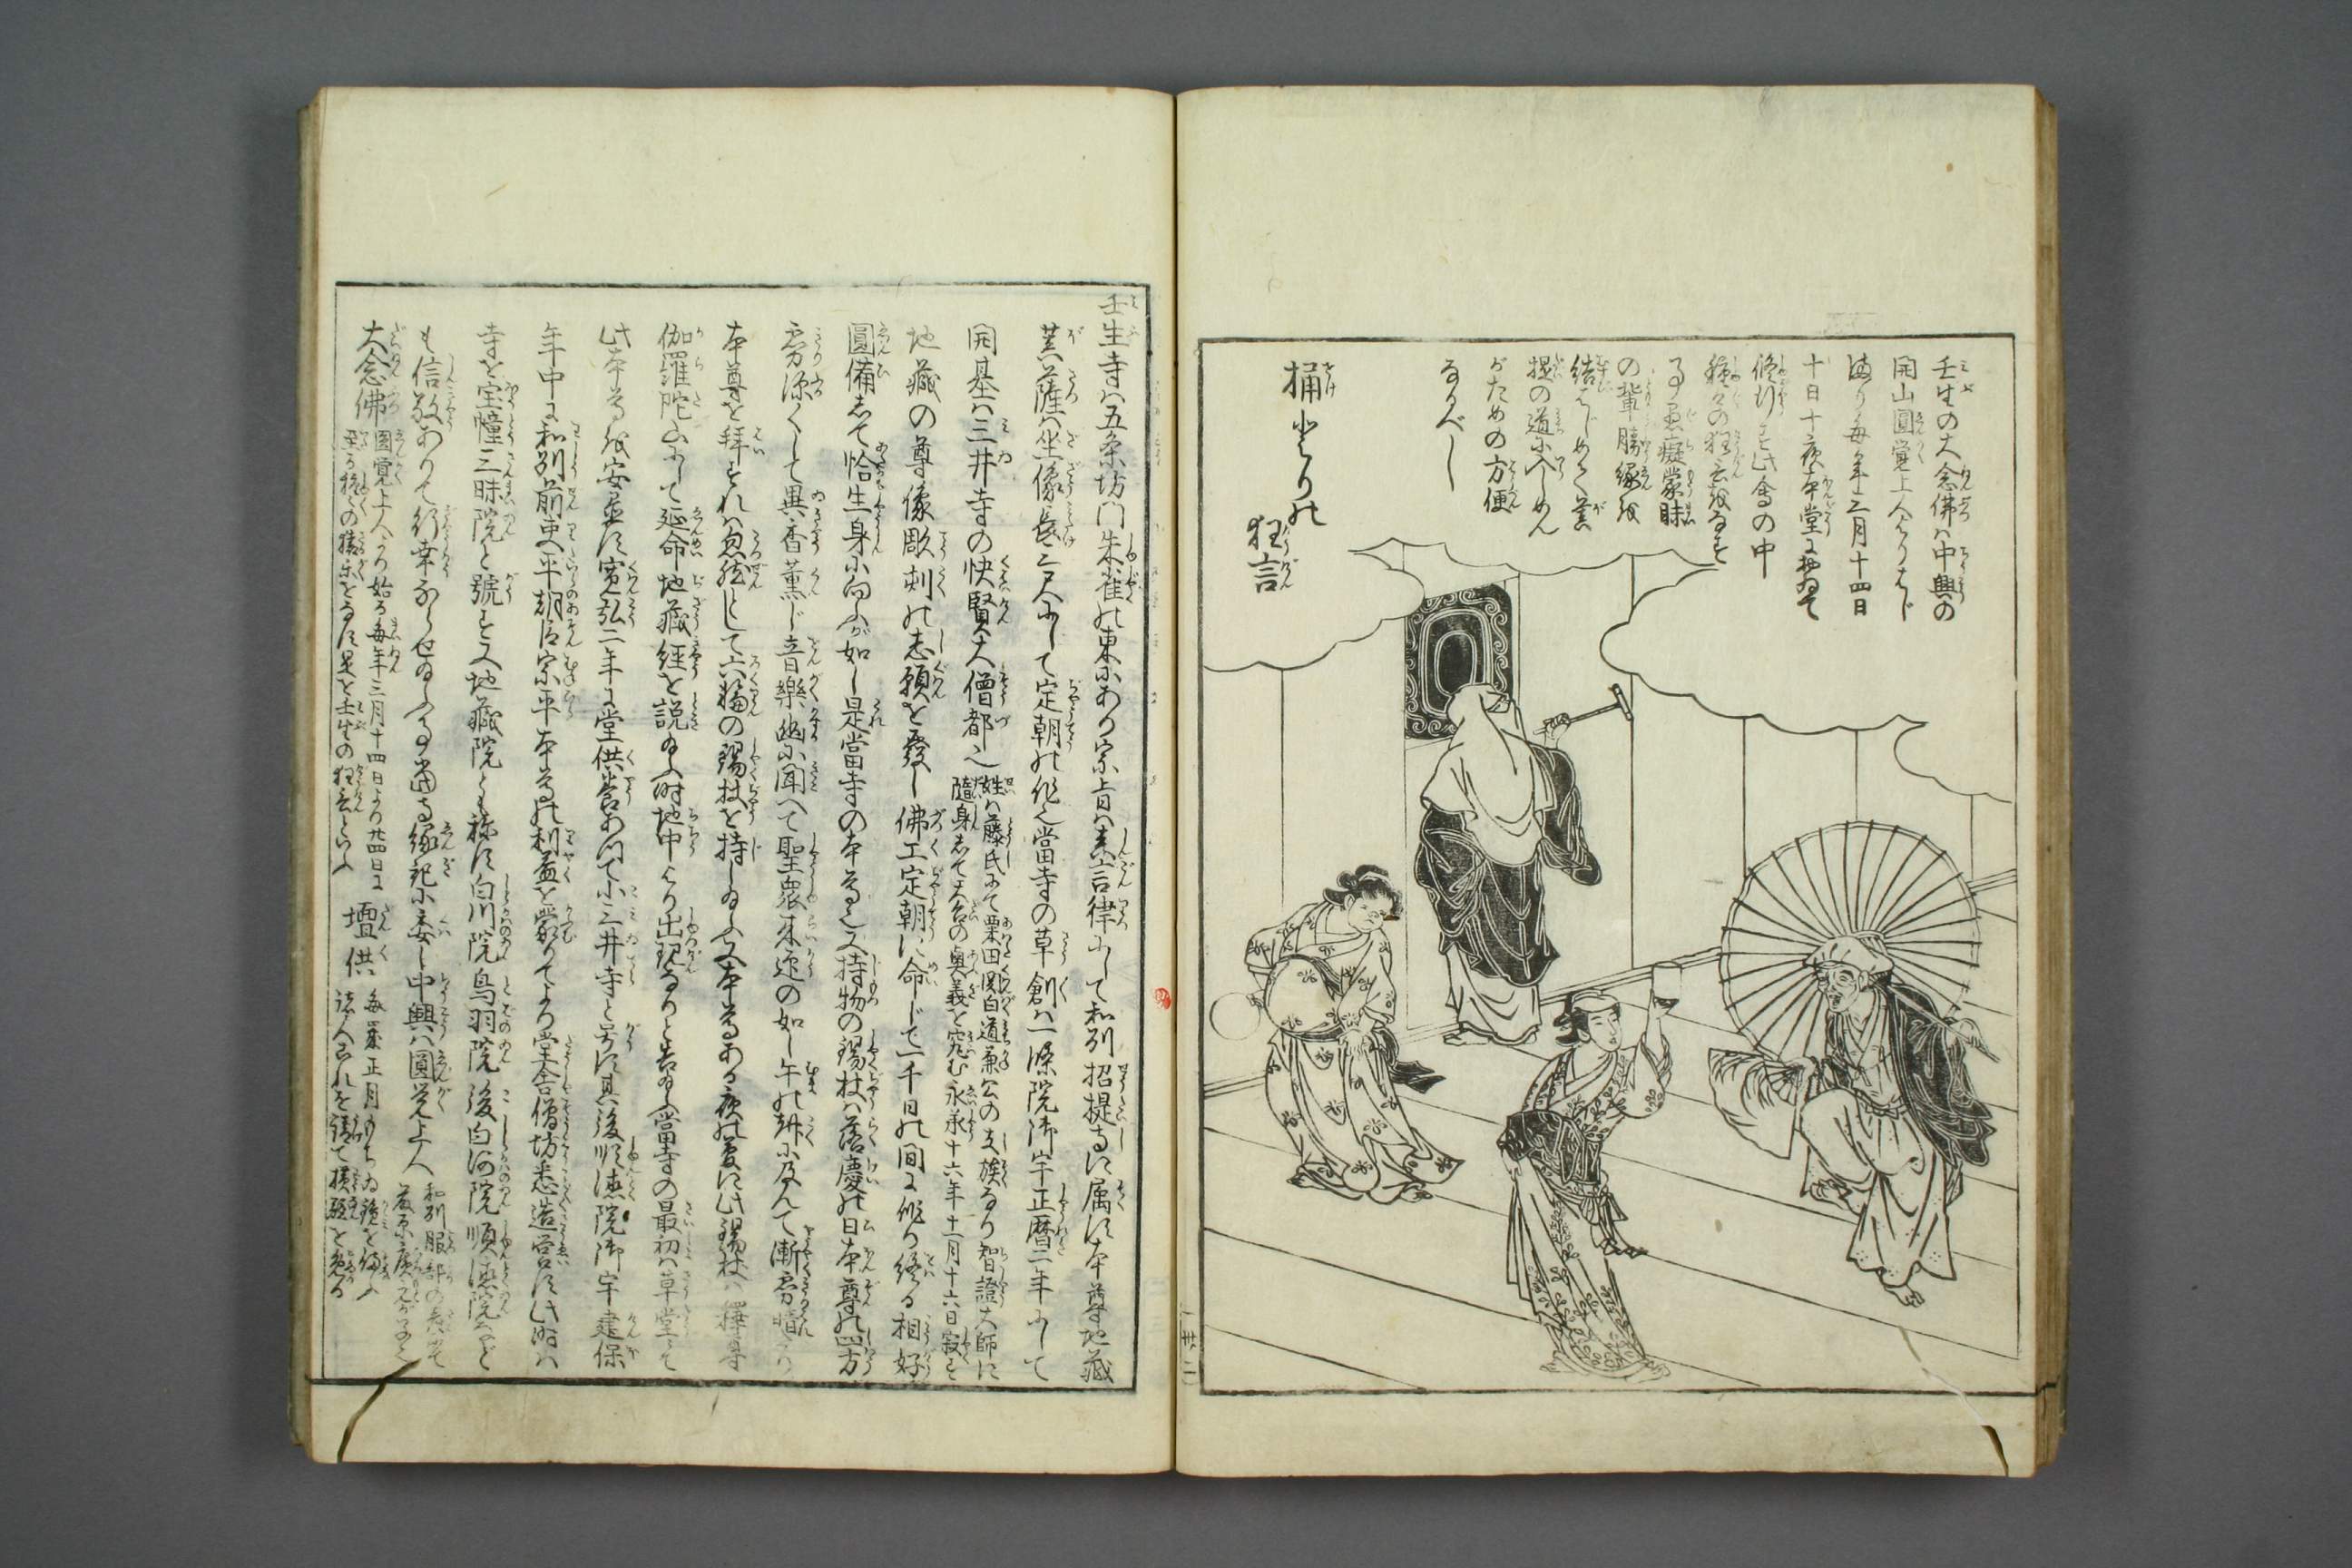 壬生の大念佛は中興の
開山圓覚上人よりはじ
まり毎年三月十四日
十日十夜本堂に於ゐて
修行す此會の中
種々の狂言をなす
事愚癡蒙昧
の輩勝縁を
結ばしめて菩
提の道に入しめん
がための方便
なるべし
桶とりの
狂言
壬生寺は五条坊門朱雀の東にあり宗旨は真言律にして和刕招提寺に属す本尊地蔵
菩薩は坐像長三尺にして定朝の作也當寺の草創は一條院御宇正暦二年にして
開基は三井寺の快賢大僧都也
姓は藤氏にて粟田関白道兼公の支族なり智證大師に
随身して天台の奥義を究む永承十六年十一月十六日寂す
地蔵の尊像彫刻の志願を發し佛工定朝に命じて一千日の間に作り終る相好
圓備して恰生身に向ふが如し是當寺の本尊也又持物の錫杖は落慶の日本尊の四方
霧深くして異香薫じ音樂幽に聞へて聖衆来迎の如し午の刻に及んで漸霧晴て
本尊を拝すれは忽然として六輪の錫杖を持しゐふ又本尊ある夜の夢に此錫杖は釋尊
伽羅陀山にして延命地蔵経を説給ふ時地中より出現なりと告給ふ當寺の最初は草堂にて
此本尊を安置す寛弘二年に堂供養あつて小三井寺と号す其後順徳院御宇建保
年中に和刕前吏平朝臣宗平本尊の利益を蒙りてより堂舎僧坊悉造営す此時は
寺を宝幢三昧院と號す又地蔵院とも称す白川院鳥羽院後白河院順徳院など
も信敬ありて行幸ならせゐふ事當寺縁起に委し中興は圓覚上人
和刕服部の
大念佛
圓覚上人より始る毎年三月十四日より廿四日に
至る種々の猿楽をなす是を壬生の狂言といふ
壇供
毎歳正月もちゐ鏡を備ふ
諸人これを請て損難を免る